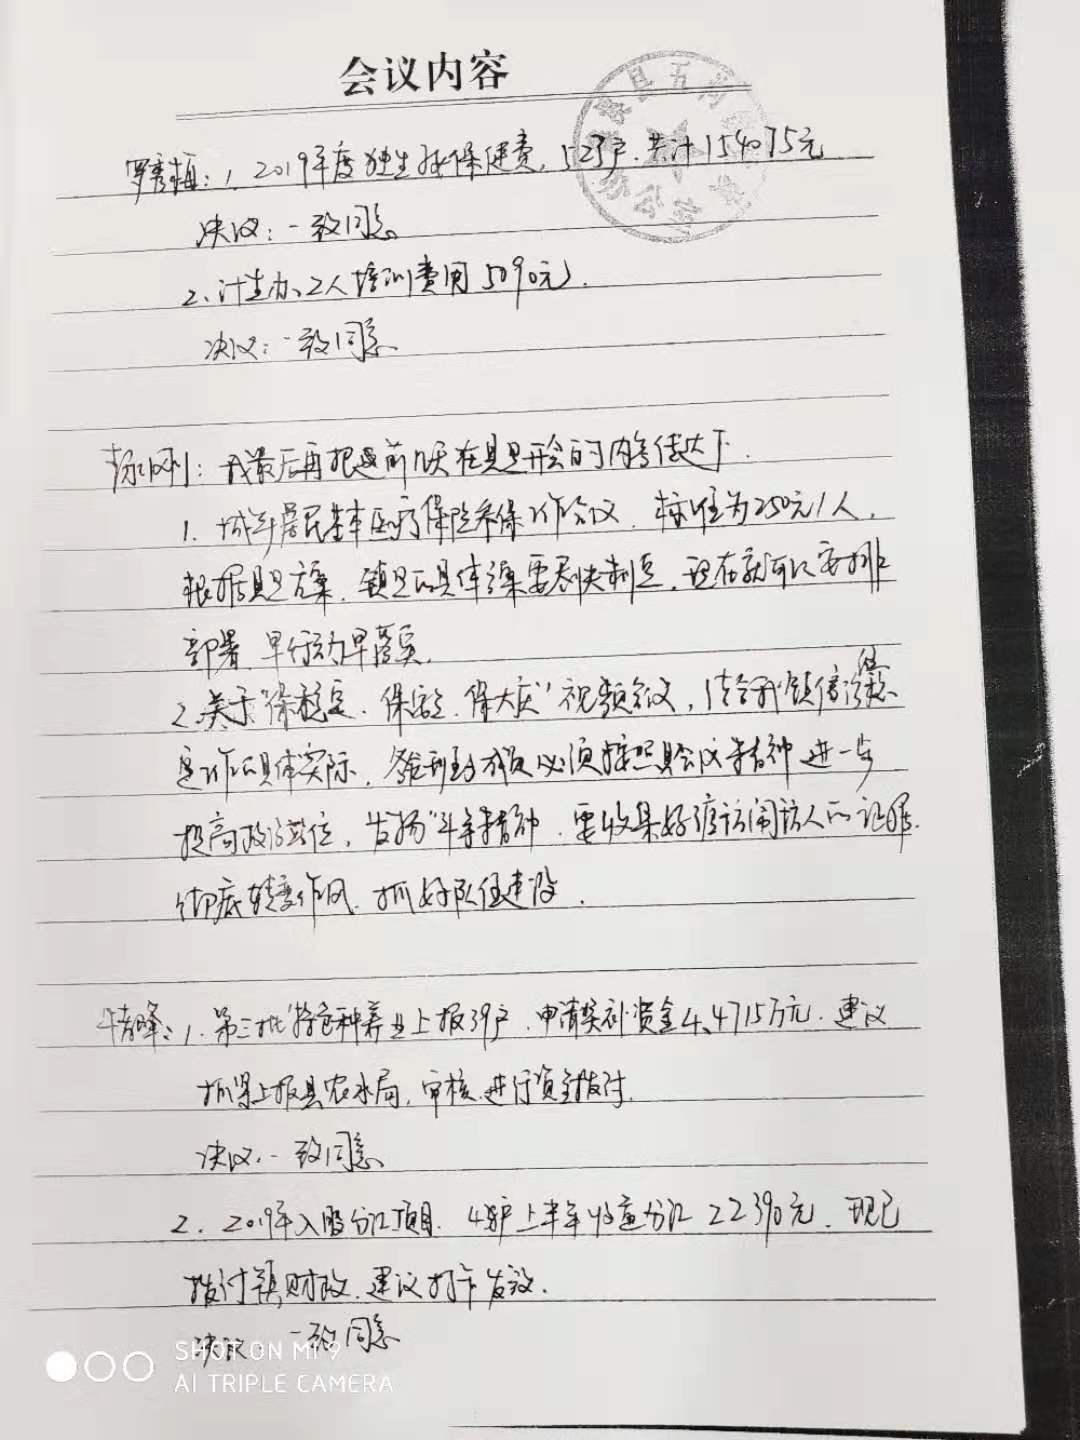 会议内容
县五河
办公室
1、2019年度独生子女保健费,523户,共计154075元
决议:一致同意
2、计生办、2人培训费用5090元.
决议:一致同意
我最后再把前几天在县里开会的内容传达下.
1、城乡居民基本医疗保险参保工作会议,标准为250元/人,
根据县里方案,镇里的具体方案要尽快制定,现在就可以安排
部署,早行动早落实.
2、关于"保稳定、保安全、保大庆"视频会议,结合我镇信访维稳
工作的具体实际,必须按照县会议精神进一步
提高政治站位,发扬"斗争精神",要收集好缠访闹访人的证据.
彻底转变作风,抓好队伍建设.
1、第三批"特色种养业上报39户,申请奖补资金4.4715万元.建议
抓紧上报县农水局,审核、进行资金拨付.
决议:一致同意
2、2019年入股分红项目.上半年收益分红22390元.现已
拨付镇财政.建议打卡发放.
决议:一致同意
SHOT ON MI 9
AI TRIPLE CAMERA